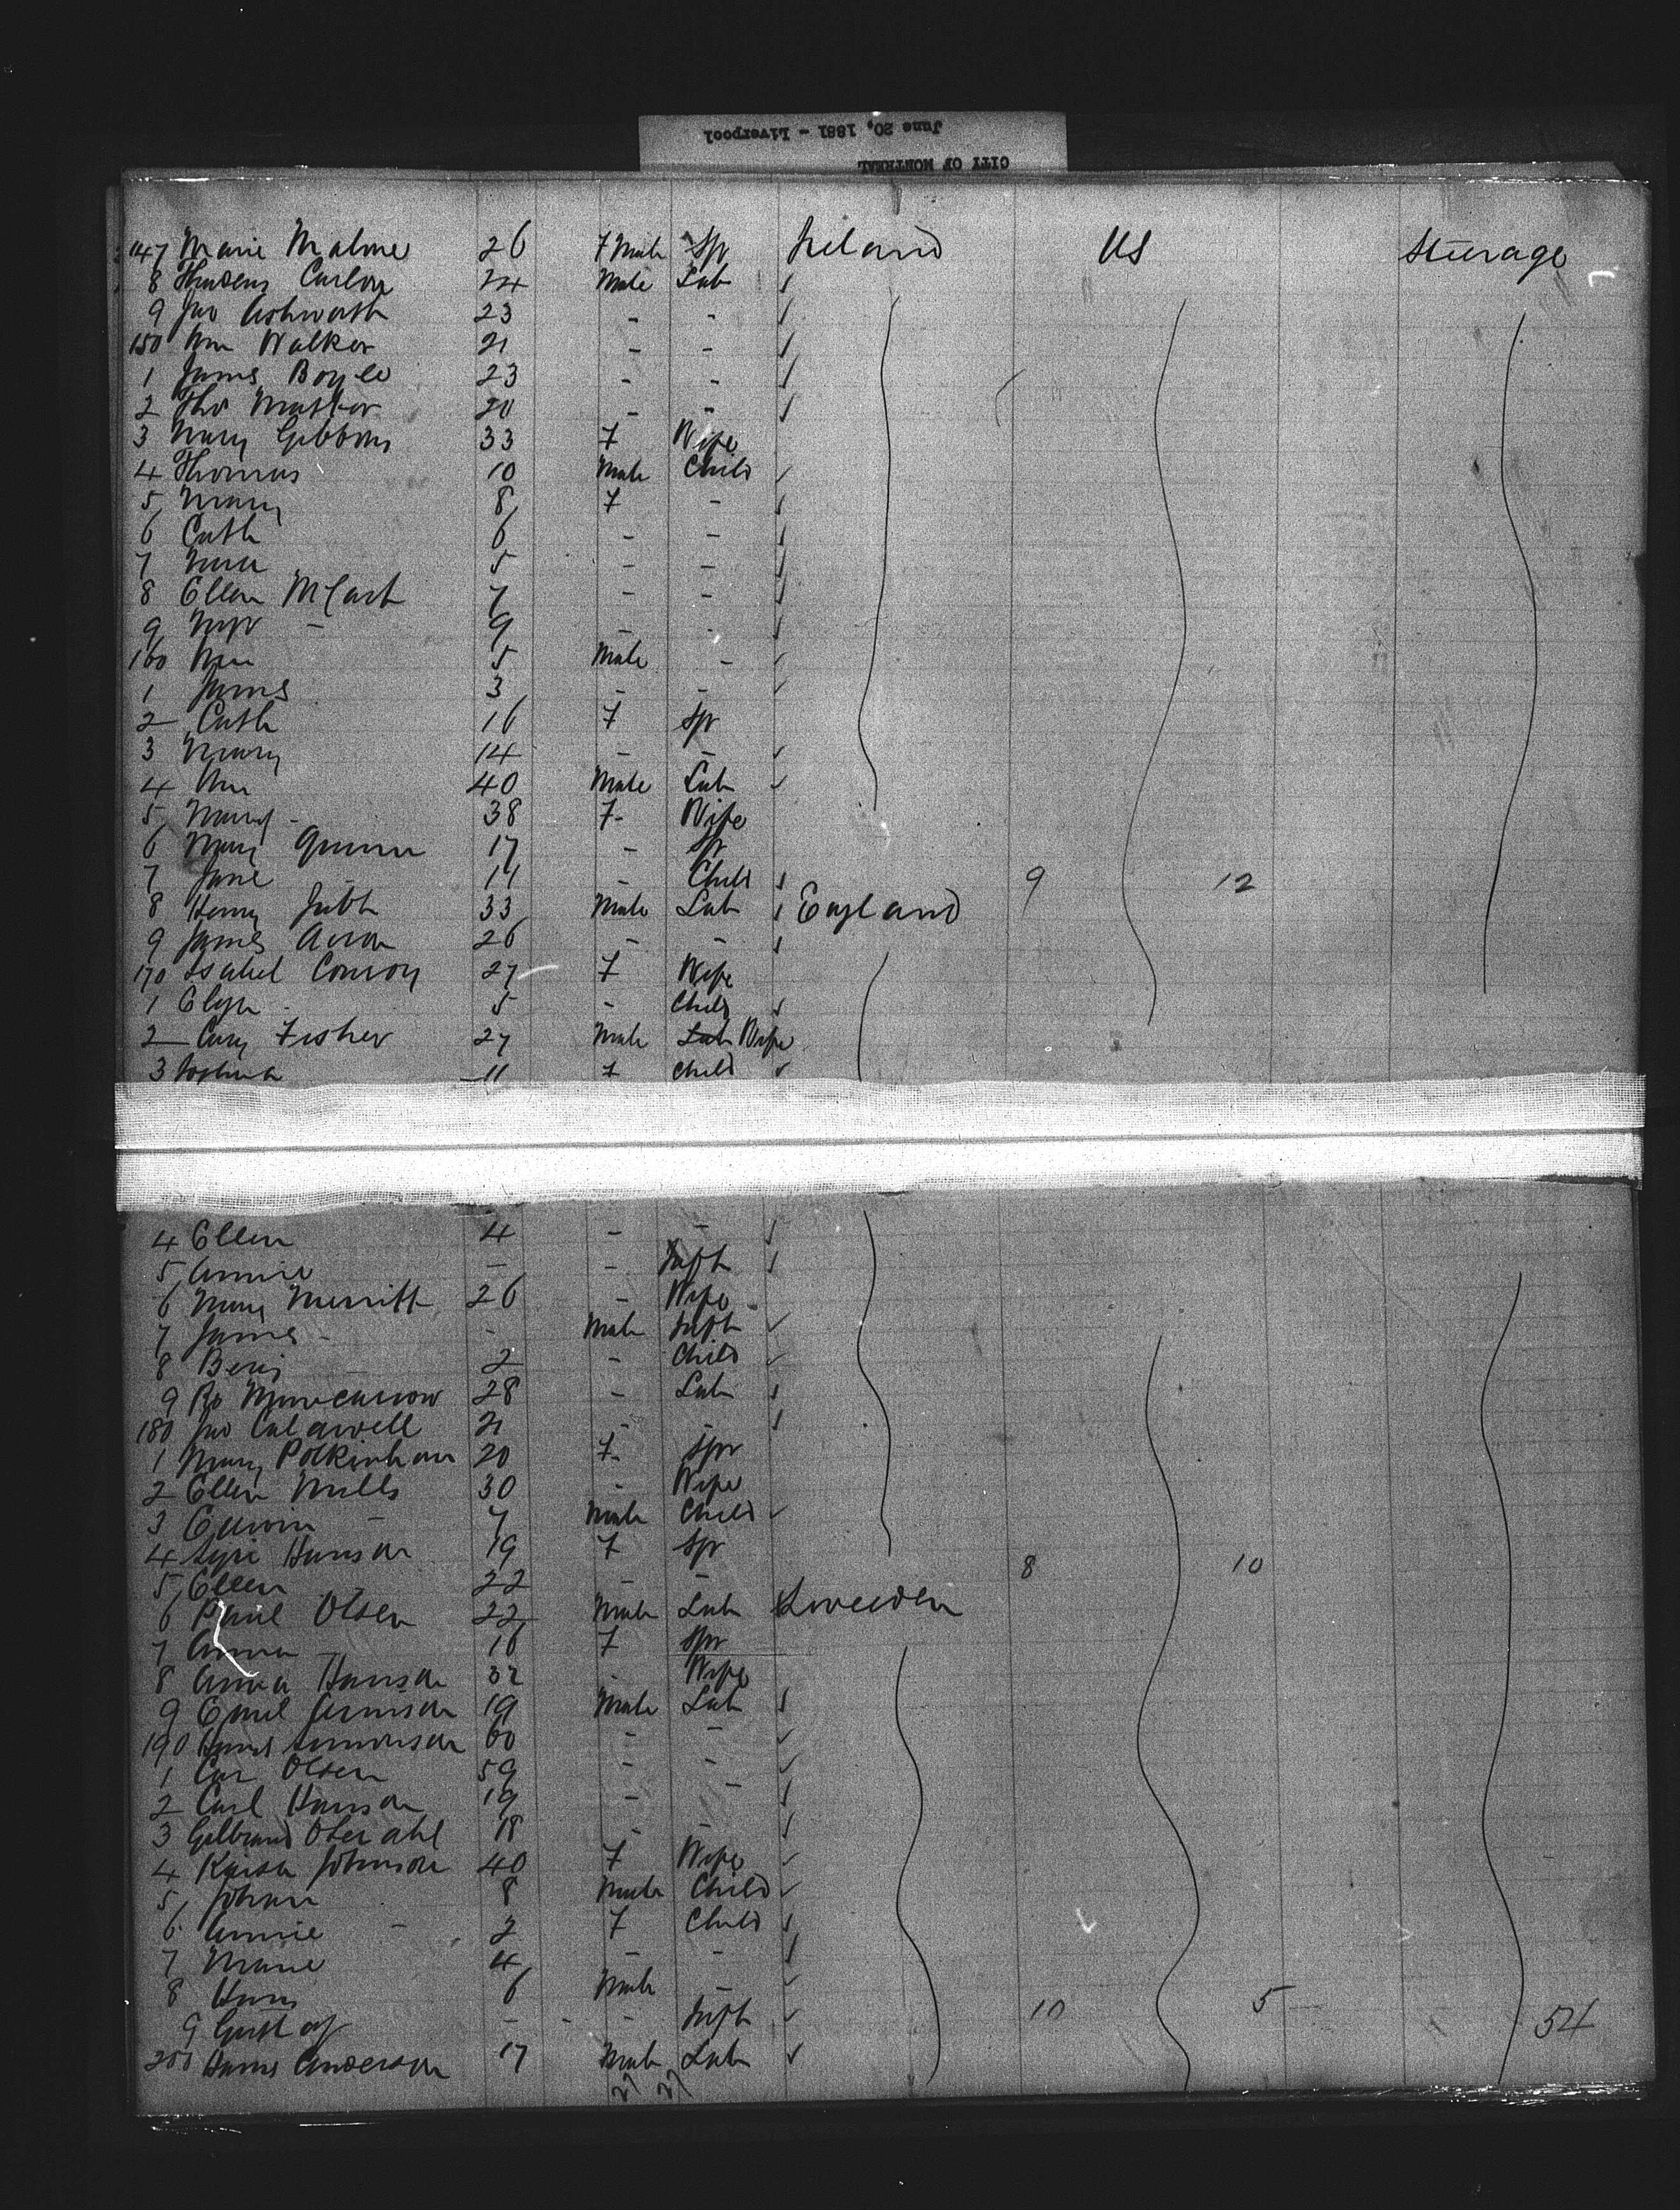 CITY OF MONTREAL
June 20, 1881 - Liverpool
147 Marie Malone 26 F Male Spr Ireland US Steerage
8 Carlon 24 Male Lab
9 Jno Ashworth 23 - -
150 Wm Walker 21 - -
1 James Boyle 23 - -
2 Tho 20 - -
3 Mary Gibbons 33 F Wife
4 Thomas 10 Male Child
5 Mary 8 F -
6 Cath 6 - -
7 5 - -
8 Ellen McCart 7 - -
9 - 9 - -
160 Wm 5 Male -
1 James 3 - -
2 Cath 16 F Spr
3 Mary 14 - -
4 Wm 40 Male Lab
5 Mary - 38 F - Wife
6 Mary Quinn 17 - Spr
7 Jane 11 - Child 9 12
8 Henry Jubb 33 Male Lab England
9 James 26 - -
170 Isabel Conroy 27 F Wife
1 5 - Child
2 Fisher 27 Male Lab Wife
3 11 F Child
4 Ellen 4 - -
5 Annie - - Inft
6 Mary Merritt 26 - Wife
7 James - - Male Inft
8 Benj 2 - Child
9 Ro 28 - Lab
180 Jno Caldwell 21 - -
1 Mary 20 F Spr
2 Ellen Mills 30 - Wife
3 Edwin - 7 Male Child
4 Hanson 19 F Spr 8 10
5 Ellen 22 - -
6 Paul Olsen 22 Male Lab Sweeden
7 Anna 16 F Spr
8 Anna Hanson 32 - Wife
9 Emil 19 Male Lab
190 60 - -
1 Car Olsen 59 - -
2 Carl Hanson 19 - -
3 18 - -
4 Kaisa Johnson 40 F Wife
5 Johan 8 Male Child
6 Annie - 2 F Child
7 Marie 4 - -
8 Hans 6 Male -
9 Gustaf - - - Inft 10 5 54
200 Anderson 17 Male Lab
27 27